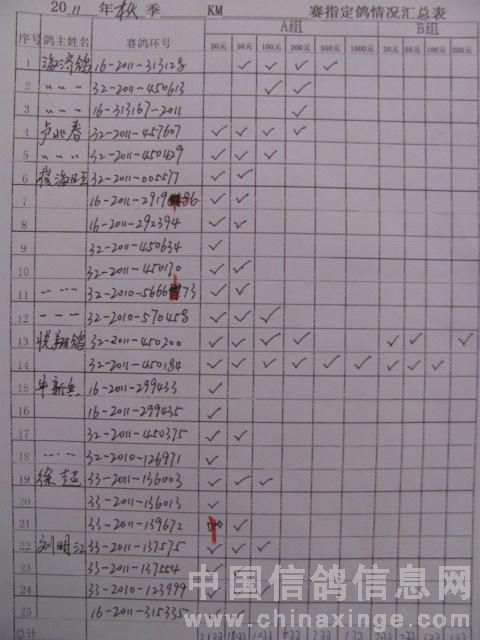 20 11 年 秋 季 KM 赛指定鸽情况汇总表
序号 鸽主姓名 赛鸽环号 A组 B组
20元 50元 100元 200元 500元 1000元 20元 50元 100元 200元
1 16-2011-313128 ✓ ✓ ✓ ✓
2 〃 〃 〃 32-2011-450613 ✓ ✓
3 〃 〃 〃 16-313167-2011 ✓
4 32-2011-457607 ✓ ✓ ✓ ✓
5 〃 〃 〃 32-2011-450429 ✓ ✓ ✓
6 32-2011-005577 ✓ ✓
7 16-2011-2919 86 ✓ ✓
8 16-2011-292394 ✓ ✓
9 32-2011-450634 ✓
10 32-2011-450170 ✓ ✓
11 32-2010-5666 73 ✓ ✓
12 32-2010-570458 ✓ ✓ ✓
13 32-2011-450200 ✓ ✓ ✓ ✓ ✓ ✓ ✓
14 32-2011-450184 ✓ ✓ ✓ ✓ ✓ ✓ ✓ ✓ ✓
15 牛新 16-2011-299433 ✓
16 16-2011-299435 ✓
17 32-2011-450375 ✓ ✓
18 32-2010-126971 ✓
19 徐超 33-2011-136003 ✓ ✓ ✓
20 33-2011-136013 ✓
21 33-2011-139672 ✓
22 刘明江 33-2011-137575 ✓ ✓ ✓
23 33-2011-137554 ✓ ✓
24 33-2010-123999 ✓
25 16-2011-315335 ✓
总计
中国信鸽信息网
www.chinaxinge.com